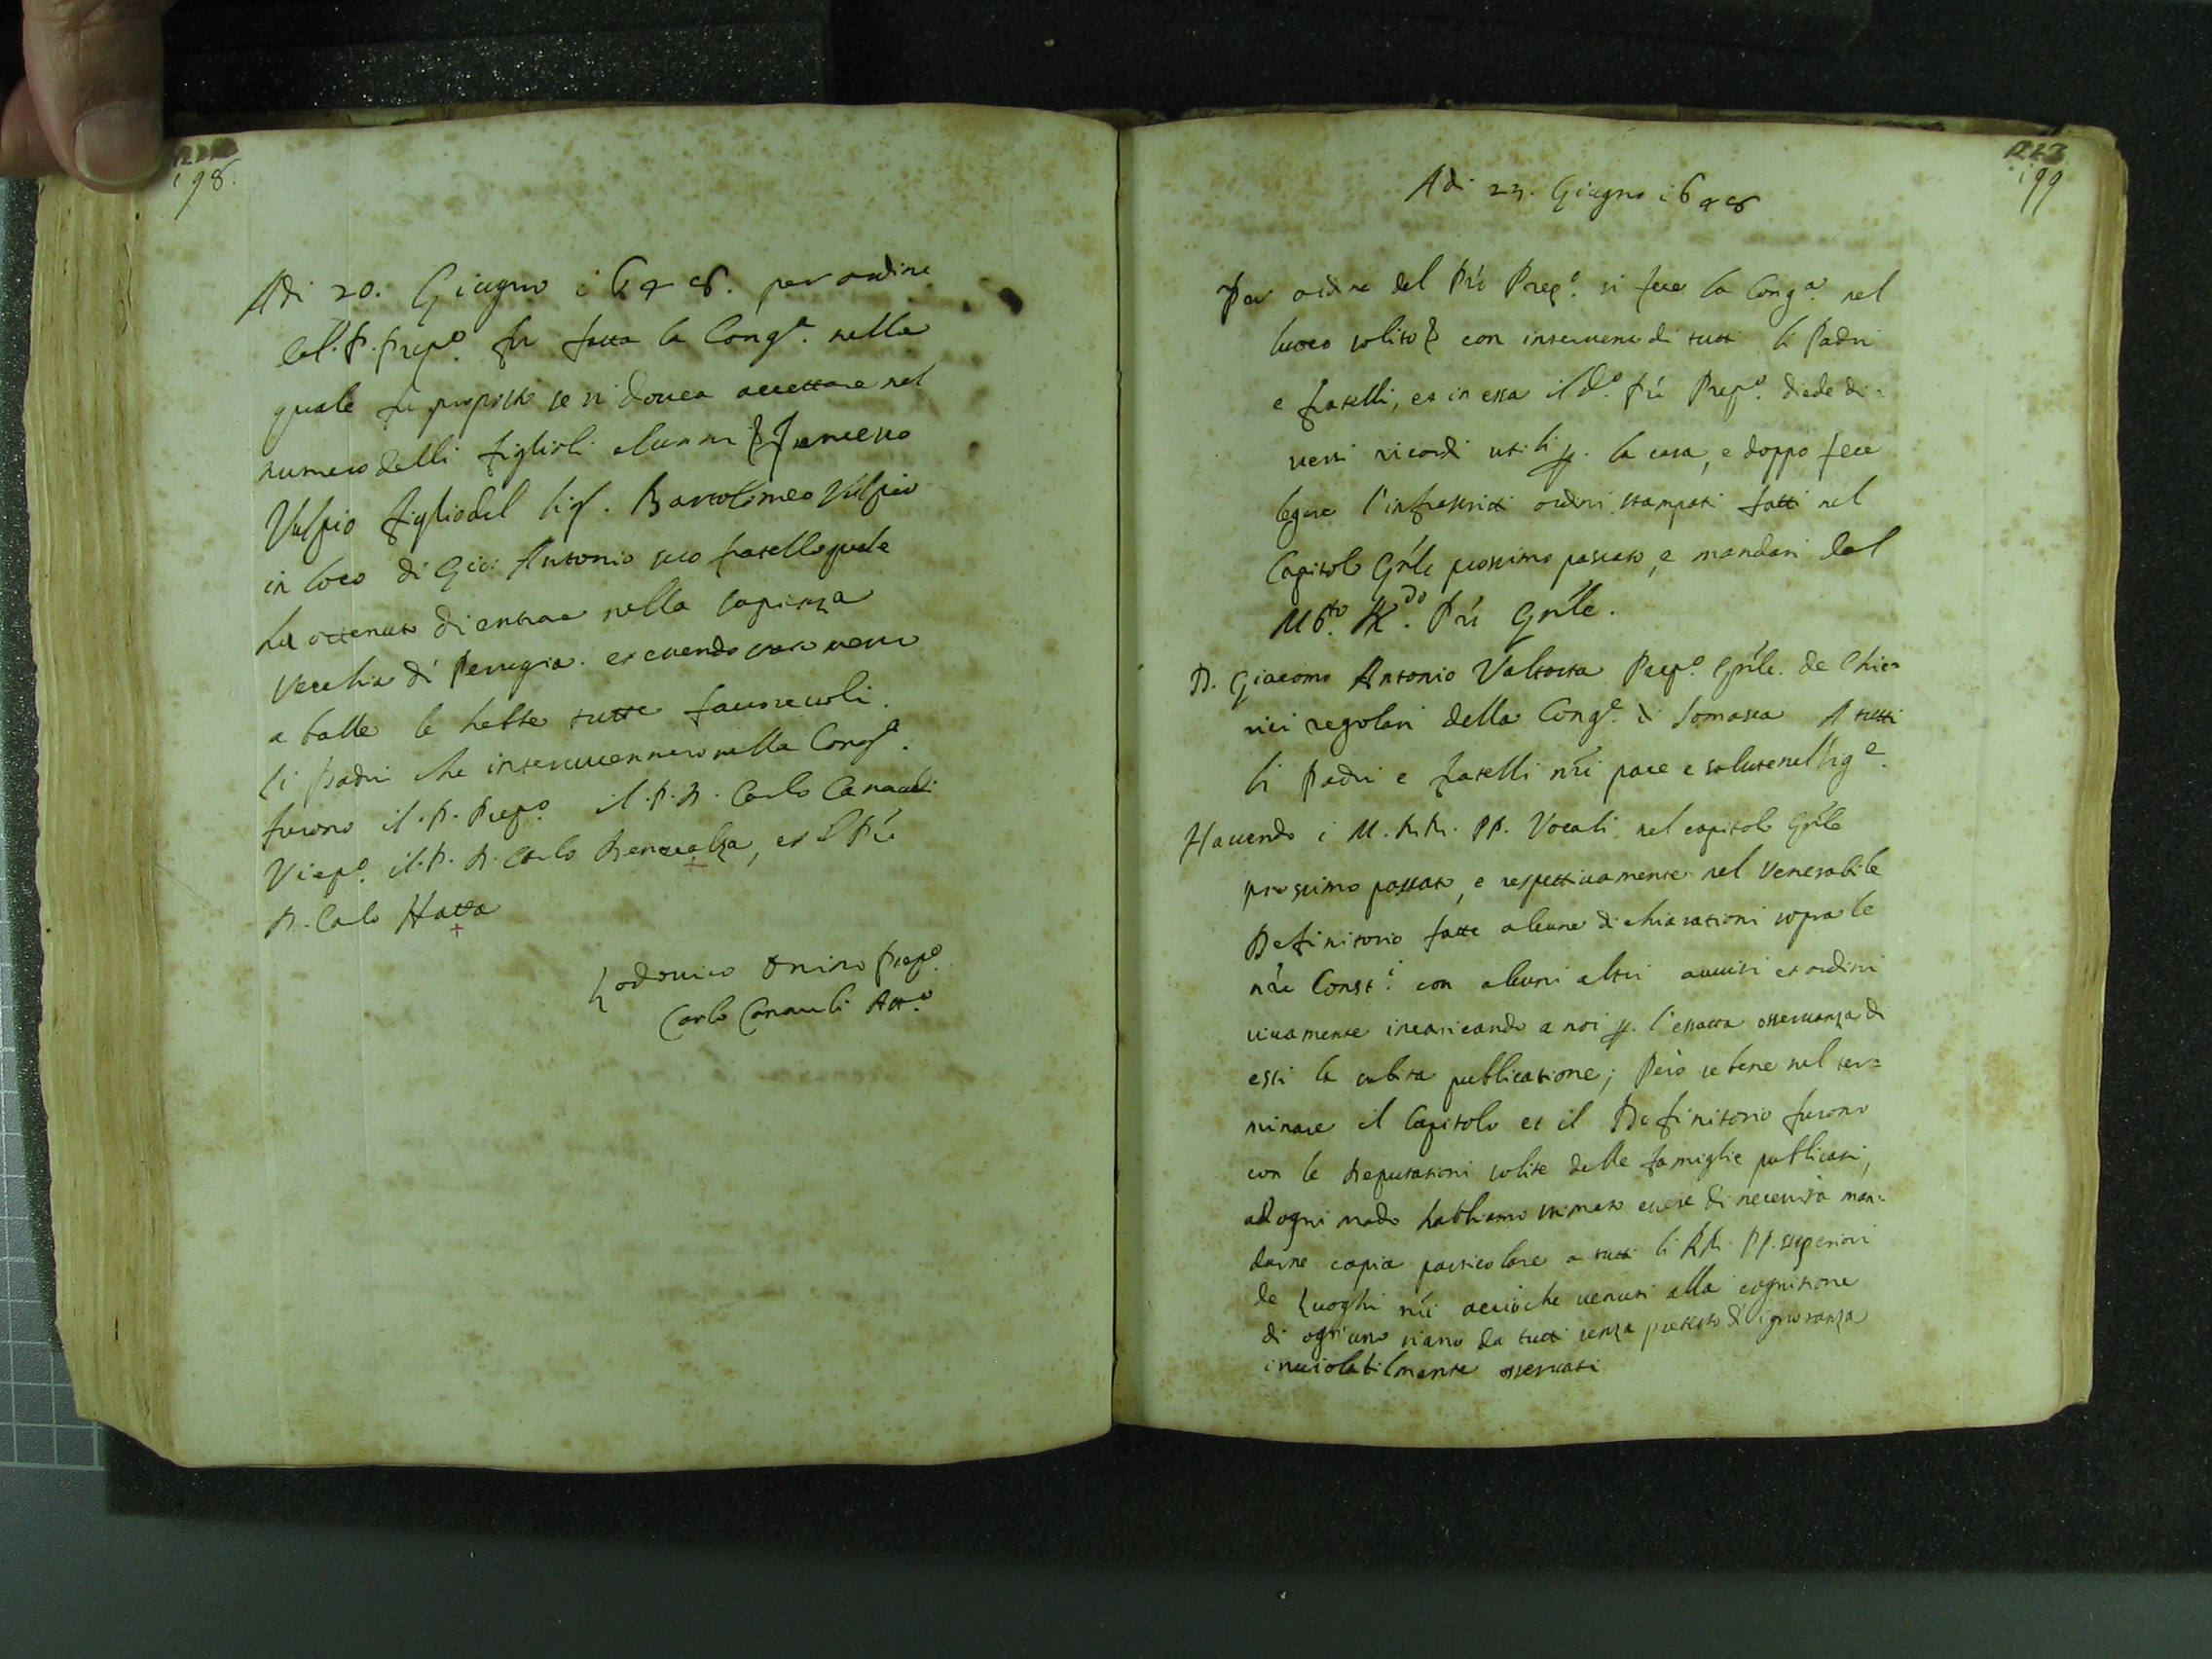 198.
Adi 20. Giugno i648. per ordine
del. P. prep.o fu fatta la Cong.e nella
quale fu proposto se si douea accettare nel
numero delli figlioli alunni Francesco
Vulpio figlio del Sig.r Bartolomeo Vulpio
in loco di Gio: Antonio suo fratello quale
ha ottenuto di entrar nella sapienza
Vecchia di Perugia. et essendo
a balle le hebbe tutte fauoreuoli.
li Padri che interuuennero nella Cong.e
furono il. P. Prep.o il. P. D. Carlo Canauli
Vicep.o il. P. D. Carlo Benaealza, et il Pré
D. Carlo Hatta
Lodouico prep.o
Carlo Canauli Att.o
199
Adi 23. Giugno i648
Per ordine del Pré Prep.o si fece la Cong.e nel
luoco solito con interuento di tutti li Padri
e fratelli, et in essa il d.o Pré Prep.o diede di=
uersi ricordi utili p. la casa, e doppo fece
legere l'infrascritti ordini stampati fatti nel
Capitolo Gńle prossimo passato, e mandati dal
M.to R.do Pré Gńle.
D. Giacomo Antonio Valtorta Prep.o Gńle. de Chie=
rici regolari della Cong.e di Somasca A tutti
li Padri e fratelli nŕi pace e salute nel Sig.e
Hauendo i M. RR. PP. Vocali nel capitolo Gńle
prossimo passato, e respettiuamente nel Venerabile
Definitorio fatte alcune dichiarationi sopra le
nŕe Const.i con alcuni altri auuisi et ordini
uiuamente incaricando a noi p. l'essatta osseruanza di
essi la subita publicatione; Però se bene nel ter=
minare il Capitolo et il Definitorio furono
con le Deputationi solite delle famiglie publicati,
ad ogni modo habbiamo stimato essere di necessità man=
darne copia particolare a tutti li RR. PP. superiori
de Luoghi nŕi accioche uenuti alla cognitione
di ogn'uno siano da tutti senza pretesto d'ignoranza
inuiolabilmente osseruati